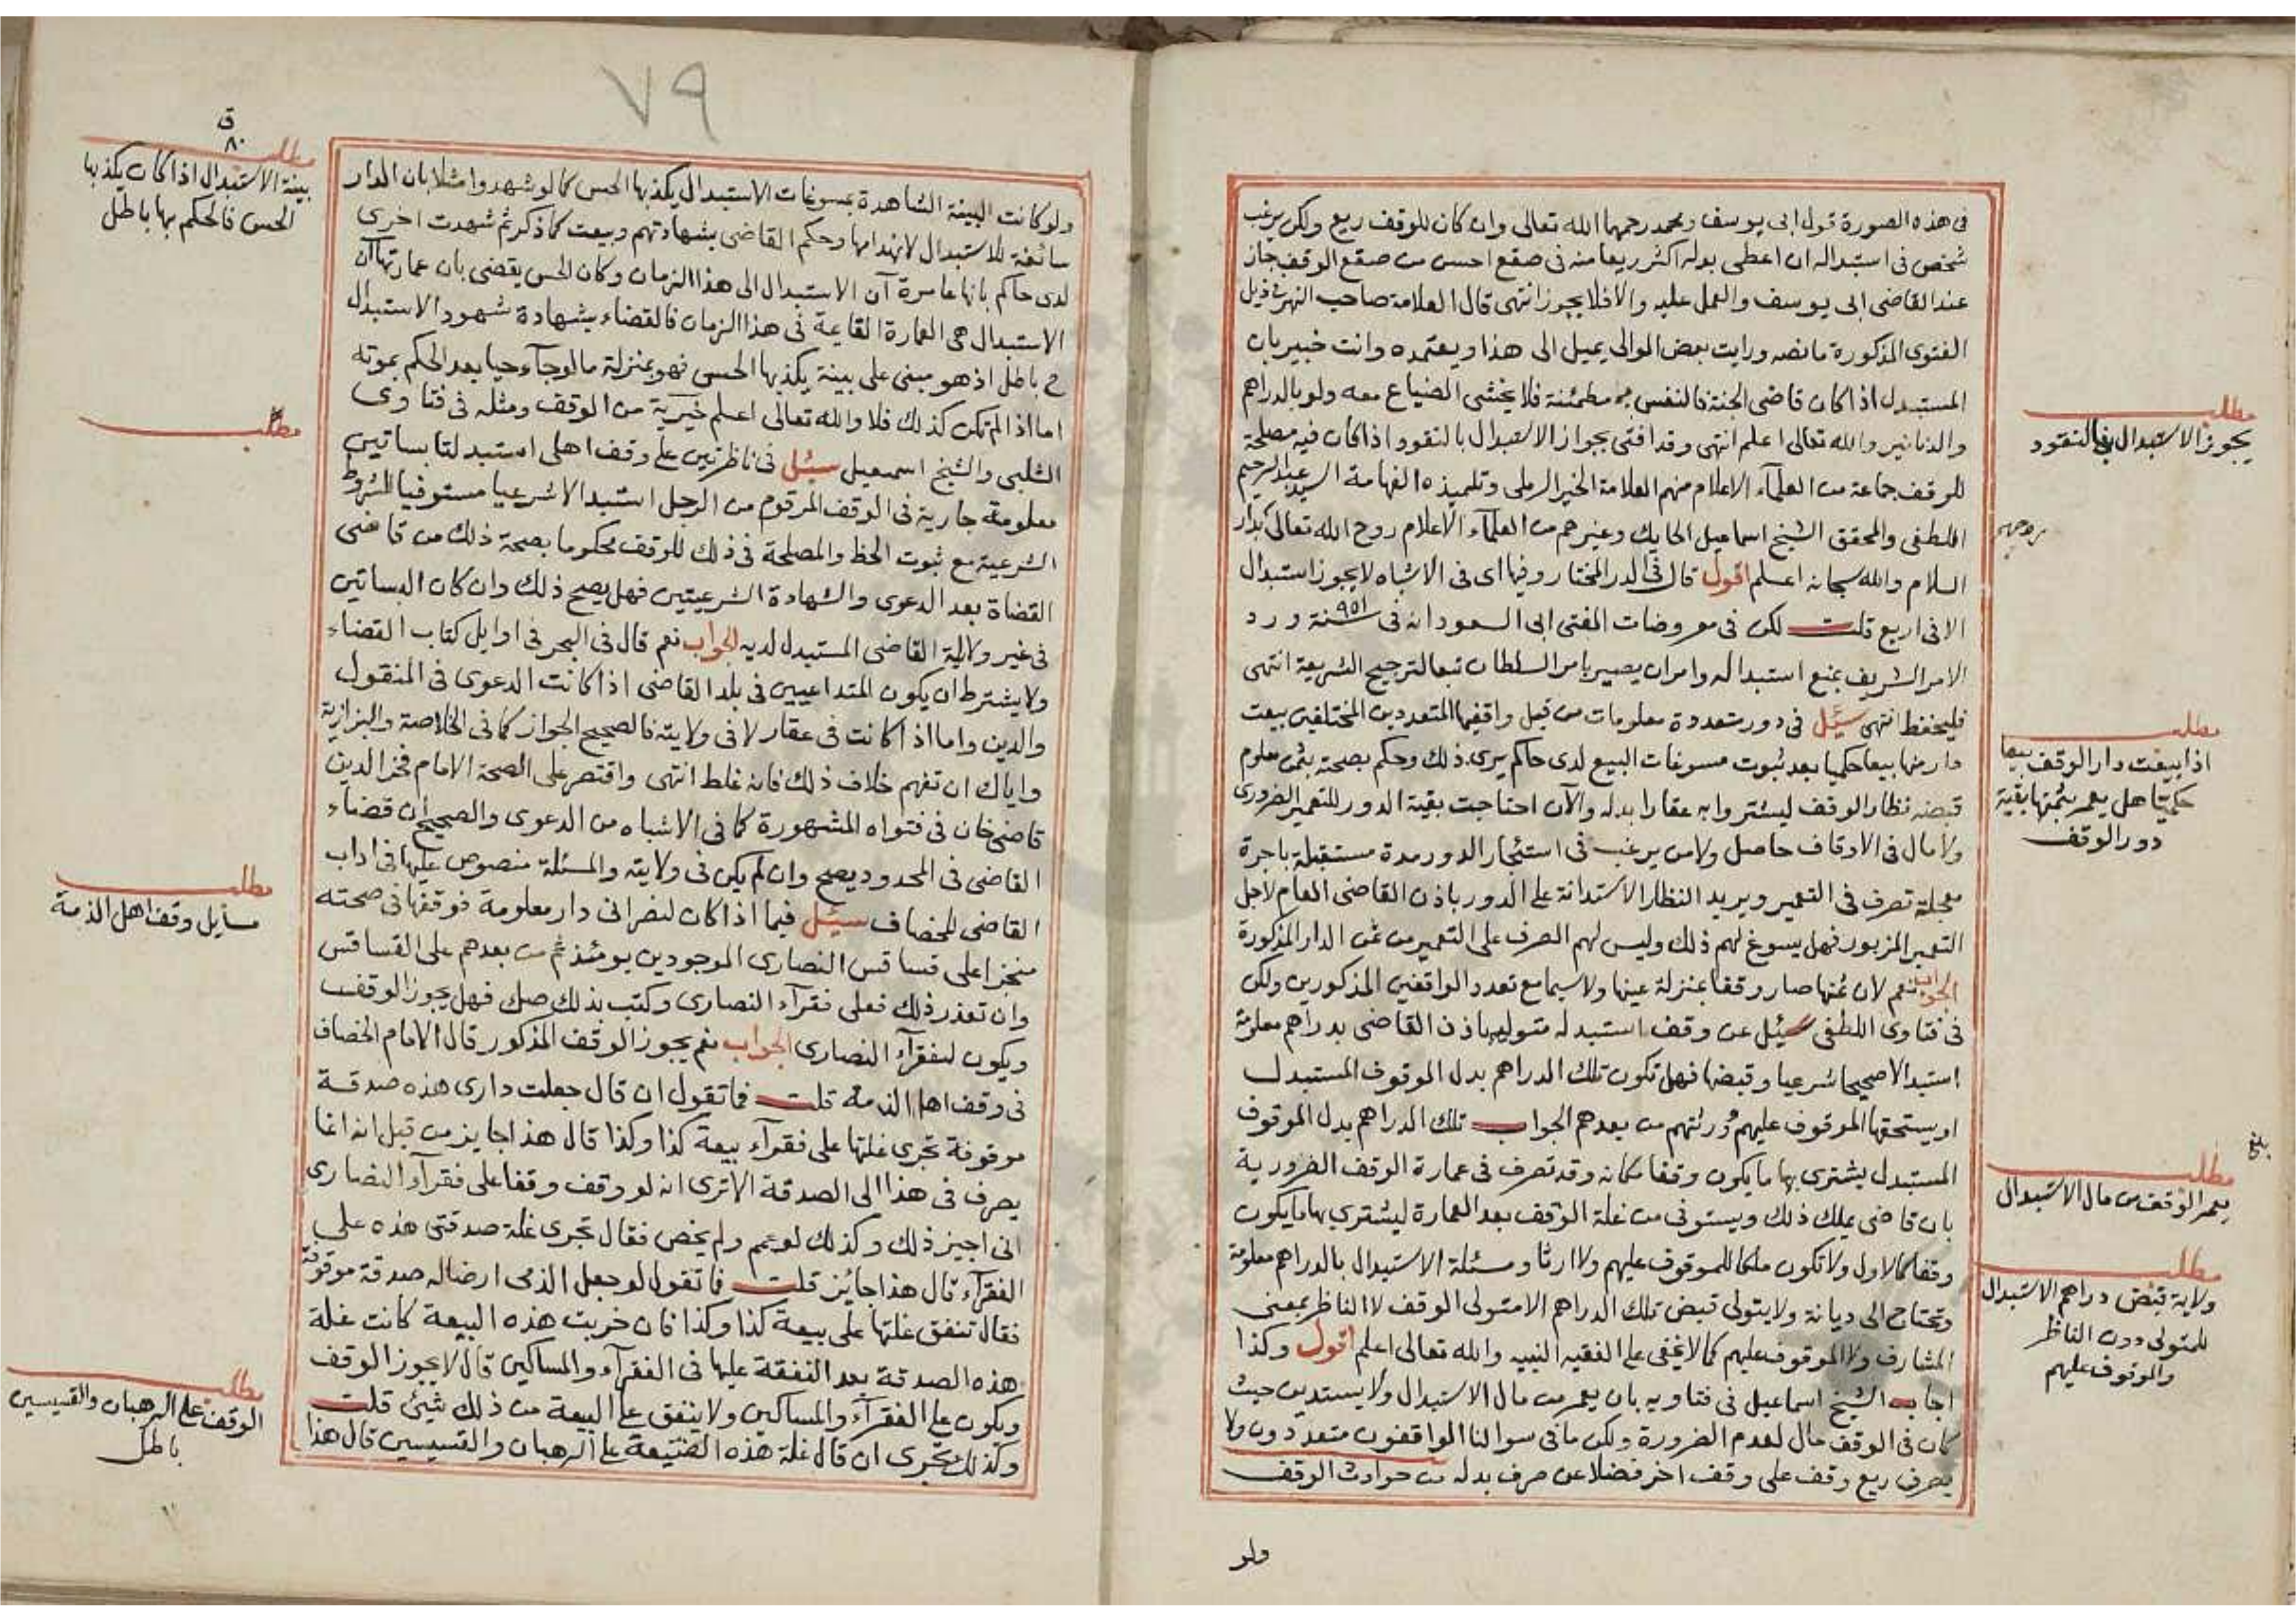 فى هذه الصورة قول ابى يوسف ومحمد رحمهما الله تعالى وان كان للوقف ريع ولكن يرغب
شخص فى استبداله ان اعطى بدله اكثر ريعا منه فى صقع احسن من صقع الوقف جاز
عند القاضى ابى يوسف والعمل عليه والا فلا يجوز انتهى قال العلامة صاحب النهر فى ذيل
الفتوى المذكورة ما نصه ورايت بعض الموالى يميل الى هذا ويعتمده وانت خبير بان
المستبدل اذا كان قاضى الجنة فالنفس به مطمئنة فلا يخشى الضياع معه ولو بالدراهم
والدنانير والله تعالى اعلم انتهى وقد افتى بجواز الاستبدال بالنقود اذا كان فيه مصلحة
للوقف جماعة من العلمآء الاعلام منهم العلامة الخير الرملى وتلميذه الفهامة السيد عبد الرحيم
اللطفى والمحقق الشيخ اسماعيل الحايك وغيرهم من العلمآء الاعلام روح الله تعالى بدار
السلام والله سبحانه اعلم اقول قال فى الدر المختار وفيها اى فى الاشباه لا يجوز استبدال
الا فى اربع قلت لكن فى معروضات المفتى ابى السعود انه فى سنة ٩٥١ ورد
الامر الشريف بمنع استبداله وامر ان يصير بامر السلطان تبعا لترجيح الشريعة انتهى
فليحفظ انتهى سئل فى دور متعددة معلومات من قبل واقفيها المتعددين المختلفين بيعت
دار منها بيعا حكميا بعد ثبوت مسوغات البيع لدى حاكم يرى ذلك وحكم بصحته بثمن معلوم
قبضه نظار الوقف ليشتروا به عقارا بدله والآن احتاجت بقية الدور للتعمير الضرورى
ولا مال فى الاوقاف حاصل ولا من يرغب فى استئجار الدور مدة مستقبلة باجرة
معجلة تصرف فى التعمير ويريد النظار الاستدانة على الدور باذن القاضى العام لاجل
التعمير المزبور فهل يسوغ لهم ذلك وليس لهم الصرف على التعمير من ثمن الدار المذكورة
الجواب نعم لان ثمنها صار وقفا بمنزلة عينها ولا سيما مع تعدد الواقفين المذكورين ولكن
فى فتاوى اللطفى سئل عن وقف استبدله متوليه باذن القاضى بدراهم معلومة
استبدالا صحيحا شرعيا وقبضها فهل تكون تلك الدراهم بدل الموقوف المستبدل
او يستحقها الموقوف عليهم وورثتهم من بعدهم الجواب تلك الدراهم بدل الموقوف
المستبدل يشترى بها ما يكون وقفا مكانه وقد تصرف فى عمارة الوقف الضرورية
بان قاضى يملك ذلك ويستوفى من غلة الوقف بعد العمارة ليشترى بها ما يكون
وقفا كالاول ولا تكون ملكا للموقوف عليهم ولا ارثا ومسئلة الاستبدال بالدراهم معلومة
وتحتاج الى ديانة ولا يتولى قبض تلك الدراهم الا متولى الوقف لا الناظر بمعنى
المشارف ولا الموقوف عليهم كما لا يخفى على الفقيه النبيه والله تعالى اعلم اقول وكذا
اجاب الشيخ اسماعيل فى فتاويه بان يعمر من مال الاستبدال ولا يستدين حيث
كان فى الوقف مال لعدم الضرورة ولكن ما فى سوالنا الواقفون متعددون ولا
يصرف ريع وقف على وقف اخر فضلا عن صرف بدله من حوادث الوقف
ولو
مطلب
يجوز الاستبدال بالنقود
مطلب
اذا بيعت دار الوقف بيعا
حكميا هل يعمر بثمنها بقية
دور الوقف
بلغ
مطلب
يعمر الوقف من مال الاستبدال
مطلب
ولاية قبض دراهم الاستبدال
للمتولى دون الناظر
والموقوف عليهم
٧٩
ولو كانت البينة الشاهدة بمسوغات الاستبدال يكذبها الحس كما لو شهدوا مثلا بان الدار
سائغة للاستبدال لانهدامها وحكم القاضى بشهادتهم وبيعت كما ذكر ثم شهدت اخرى
لدى حاكم بانها عامرة آن الاستبدال الى هذا الزمان وكان الحس يقضى بان عمارتها آن
الاستبدال هى العمارة القايمة فى هذا الزمان فالقضاء بشهادة شهود الاستبدال
ح باطل اذ هو مبنى على بينة يكذبها الحس فهو بمنزلة ما لو جآء حيا بعد الحكم بموته
اما اذا لم تكن كذلك فلا والله تعالى اعلم خيرية من الوقف ومثله فى فتاوى
الشلبى والشيخ اسمعيل سئل فى ناظرتين على وقف اهلى استبدلتا بساتين
معلومة جارية فى الوقف المرقوم من الرجل استبدالا شرعيا مستوفيا للشروط
الشرعية مع ثبوت الحظ والمصلحة فى ذلك للوقف محكوما بصحة ذلك من قاضى
القضاة بعد الدعوى والشهادة الشرعيتين فهل يصح ذلك وان كان البساتين
فى غير ولاية القاضى المستبدل لديه الجواب نعم قال فى البحر فى اوايل كتاب القضاء
ولا يشترط ان يكون المتداعيين فى بلد القاضى اذا كانت الدعوى فى المنقول
والدين واما اذا كانت فى عقار لا فى ولايته فالصحيح الجواز كما فى الخلاصة والبزازية
واياك ان تفهم خلاف ذلك فانه غلط انتهى واقتصر على الصحة الامام فخر الدين
قاضى خان فى فتواه المشهورة كما فى الاشباه من الدعوى والصحيح ان قضاء
القاضى فى المحدود يصح وان لم يكن فى ولايته والمسئلة منصوص عليها فى اداب
القاضى للخصاف سئل فيما اذا كان لنصرانى دار معلومة فوقفها فى صحته
منجزا على قساقس النصارى الموجودين يومئذ ثم من بعدهم على القساقس
وان تعذر ذلك فعلى فقرآء النصارى وكتب بذلك صك فهل يجوز الوقف
ويكون لفقرآء النصارى الجواب نعم يجوز الوقف المذكور قال الامام الخصاف
فى وقف اهل الذمة قلت فما تقول ان قال جعلت دارى هذه صدقة
موقوفة تجرى غلتها على فقرآء بيعة كذا وكذا قال هذا جايز من قبل انه انما
يصرف فى هذا الى الصدقة الا ترى انه لو وقف وقفا على فقرآء النصارى
انى اجيز ذلك وكذلك لو عمم ولم يخص فقال تجرى غلة صدقتى هذه على
الفقرآء قال هذا جائز قلت فما تقول لو جعل الذمى ارضا له صدقة موقوفة
فقال تنفق غلتها على بيعة كذا وكذا فان خربت هذه البيعة كانت غلة
هذه الصدقة بعد النفقة عليها فى الفقرآء والمساكين قال لا يجوز الوقف
ويكون على الفقرآء والمساكين ولا ينفق على البيعة من ذلك شيئ قلت
وكذلك تجرى ان قال غلة هذه الضيعة على الرهبان والقسيسين قال هذا
ق
٨٠
مطلب
بينة الاستبدال اذا كان يكذبها
الحس فالحكم بها باطل
مطلب
مطلب
مسايل وقف اهل الذمة
مطلب
الوقف على الرهبان والقسيسين
باطل